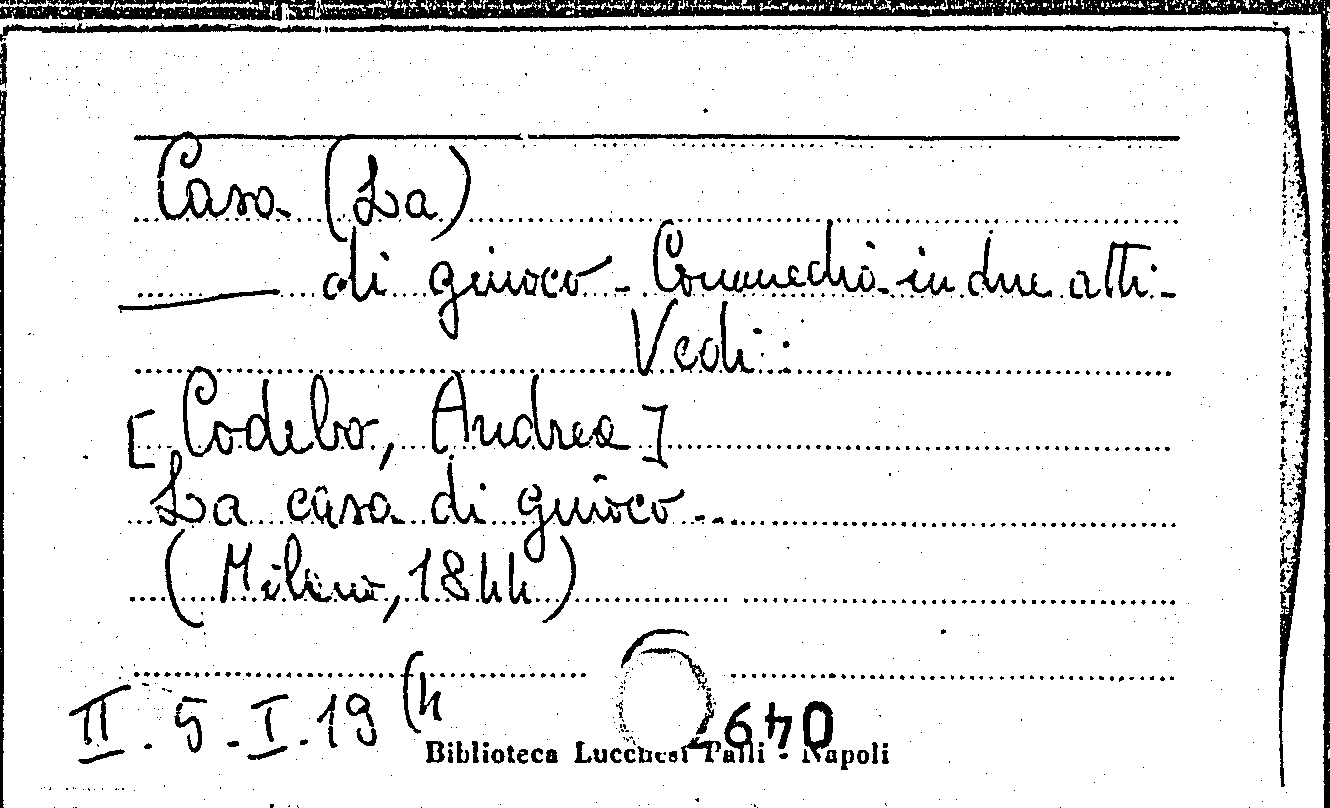 Casa (La)
——— di giuoco - Commedia in due atti -
Vedi:
[Codebo, Andrea]
La casa di giuoco ...
(Milano, 1844)
II. 5. I. 19 (4
Biblioteca Lucchesi Palli - Napoli